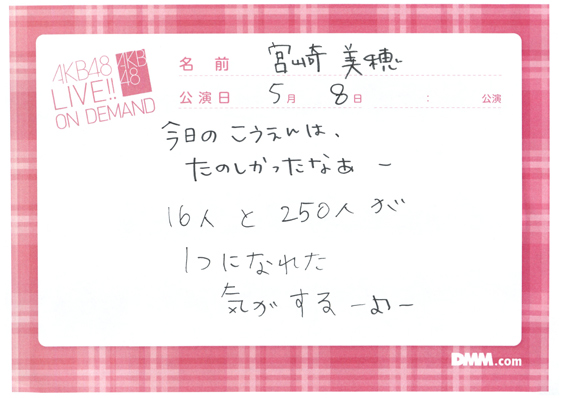 AKB48
LIVE!!
ON DEMAND
AKB
48
名前 宮崎美穂
公演日 5月 8日 : 公演
今日の こうえんは、
たのしかったなぁー
16人 と 250人 が
1つになれた
気がするーよー
DMM.com